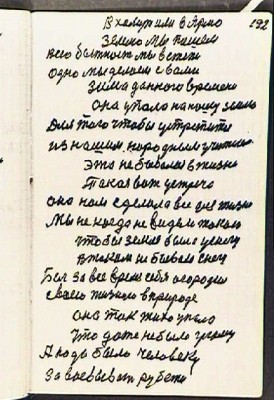 В халат или в Армо 192
Землю мы пашем
Всего бытность мы встети
Одно мы делаем с вами
Зима данного времени
Она упало на нашу землю
Для того чтобы устретить
из нашим народным учителем
Это не бывалы в жизно
Такая вот устреча
она нам сделала все для жизни
Мы не когда не видем такого
чтобы земля была у снегу
в таком не бывало снегу
Бог за все время себя огородил
своею жизною в природе
она так тихо упало
Что даже не было у
А людь было человеку
Завоевывать рубежи